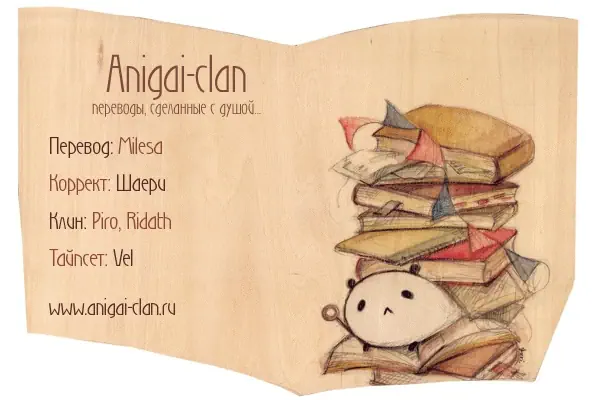 Anigai-clan
переводы, сделанные с душой...
Перевод: Milesa
Коррект: Шаери
Клин: Piro, Ridath
Тайпсет: Vel
www.anigai-clan.ru